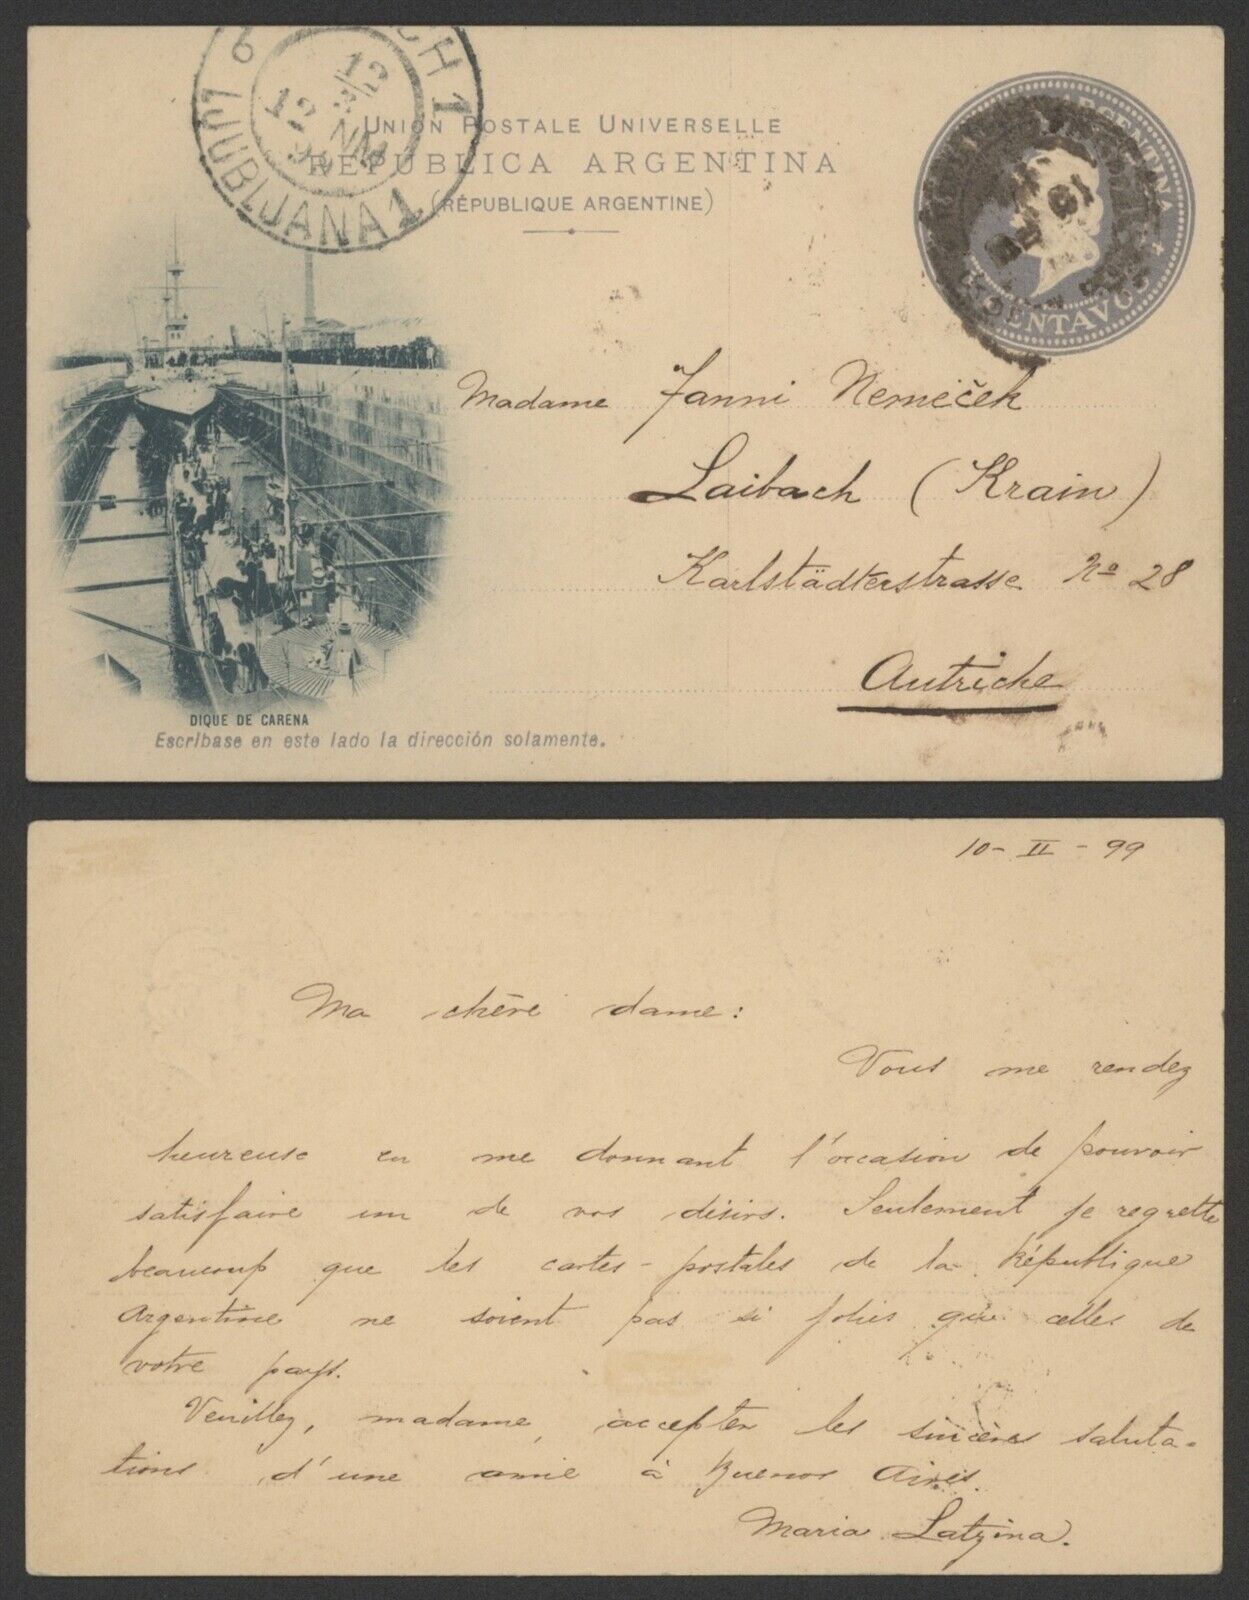 LJUBLJANA 1
12
12
UNION POSTALE UNIVERSELLE
REPÚBLICA ARGENTINA
(RÉPUBLIQUE ARGENTINE)
ARGENTINA
CENTAVOS
Madame Fanni Nemeček
Laibach (Krain)
Karlstädterstrasse Nº 28
Autriche
DIQUE DE CARENA
Escríbase en este lado la dirección solamente.
10 - II - 99
Ma chère dame:
Vous me rendez
heureuse en me donnant l'occasion de pouvoir
satisfaire un de vos désirs. Seulement je regrette
beaucoup que les cartes-postales de la République
Argentine ne soient pas si jolies que celles de
votre pays.
Veuillez, madame, accepter les sincères saluta-
tions d'une amie à Buenos Aires.
Maria Latzina.